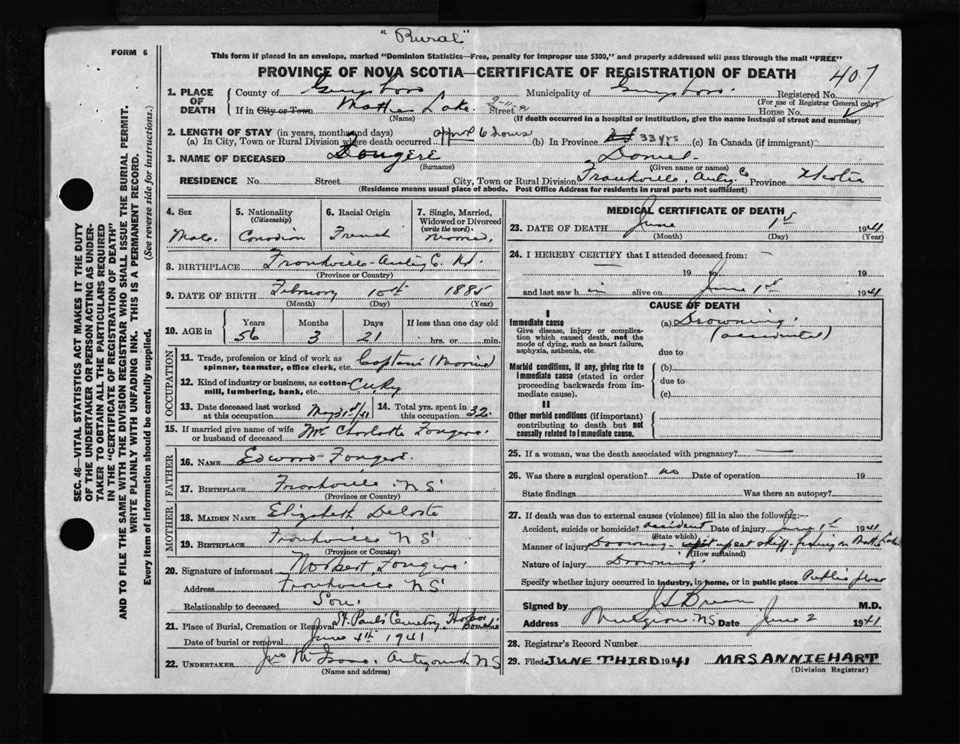 "Rural"
FORM 6
This form if placed in an envelope, marked "Dominion Statistics—Free, penalty for improper use $300," and properly addressed will pass through the mail "FREE"
PROVINCE OF NOVA SCOTIA—CERTIFICATE OF REGISTRATION OF DEATH
407
1. PLACE OF DEATH
County of Guysboro Municipality of Guysboro. Registered No.
(For use of Registrar General only)
If in City or Town Lake Street House No.
(Name) (If death occurred in a hospital or institution, give the name instead of street and number)
2. LENGTH OF STAY (in years, months and days)
(a) In City, Town or Rural Division where death occurred approx 6 hours (b) In Province 33 yrs (c) In Canada (if immigrant)
3. NAME OF DECEASED Fougere Daniel
(Surname) (Given name or names)
RESIDENCE No. Street City, Town or Rural Division Frankville Antig. Co Province N Scotia
(Residence means usual place of abode. Post Office Address for residents in rural parts not sufficient)
4. Sex Male
5. Nationality (Citizenship) Canadian
6. Racial Origin French
7. Single, Married, Widowed or Divorced (write the word) Married.
8. BIRTHPLACE Frankville
(Province or Country)
9. DATE OF BIRTH February 10th 1885
(Month) (Day) (Year)
10. AGE in Years 56 Months 3 Days 21 If less than one day old hrs. or min.
OCCUPATION
11. Trade, profession or kind of work as spinner, teamster, office clerk, etc. Captain
12. Kind of industry or business, as cotton-mill, lumbering, bank, etc.
13. Date deceased last worked at this occupation 14. Total yrs. spent in this occupation 32.
15. If married give name of wife or husband of deceased Charlotte Fougere
FATHER
16. NAME Edward Fougere.
17. BIRTHPLACE Frankville NS
(Province or Country)
MOTHER
18. MAIDEN NAME Elizabeth
19. BIRTHPLACE Frankville NS
(Province or Country)
20. Signature of informant Norbert Fougere
Address Frankville NS
Relationship to deceased Son.
21. Place of Burial, Cremation or Removal St. Paul's Cemetery, Harbor
Date of burial or removal June 4th 1941
22. UNDERTAKER Antigonish NS
(Name and address)
MEDICAL CERTIFICATE OF DEATH
23. DATE OF DEATH June 1st 1941
(Month) (Day) (Year)
24. I HEREBY CERTIFY that I attended deceased from:
19 to 19
and last saw h im alive on June 1st 1941
CAUSE OF DEATH
I
Immediate cause
Give disease, injury or complication which caused death, not the mode of dying, such as heart failure, asphyxia, asthenia, etc.
(a) Drowning
(accidental)
due to
Morbid conditions, if any, giving rise to immediate cause (stated in order proceeding backwards from immediate cause).
(b)
due to
(c)
II
Other morbid conditions (if important) contributing to death but not causally related to immediate cause.
25. If a woman, was the death associated with pregnancy?
26. Was there a surgical operation? no Date of operation 19
State findings Was there an autopsy?
27. If death was due to external causes (violence) fill in also the following:—
Accident, suicide or homicide? accident Date of injury June 1st 1941
(State which)
Manner of injury Drowning - upset skiff - fishing Lake
(How sustained)
Nature of injury Drowning
Specify whether injury occurred in industry, in home, or in public place Public place
Signed by M.D.
Address Mulgrave NS Date June 2 1941
28. Registrar's Record Number
29. Filed JUNE THIRD 1941 MRS ANNIE HART
(Division Registrar)
SEC. 46—VITAL STATISTICS ACT MAKES IT THE DUTY
OF THE UNDERTAKER OR PERSON ACTING AS UNDER-
TAKER TO OBTAIN ALL THE PARTICULARS REQUIRED
IN THE "CERTIFICATE OF REGISTRATION OF DEATH"
AND TO FILE THE SAME WITH THE DIVISION REGISTRAR WHO SHALL ISSUE THE BURIAL PERMIT.
WRITE PLAINLY WITH UNFADING INK. THIS IS A PERMANENT RECORD.
Every item of information should be carefully supplied. (See reverse side for instructions.)